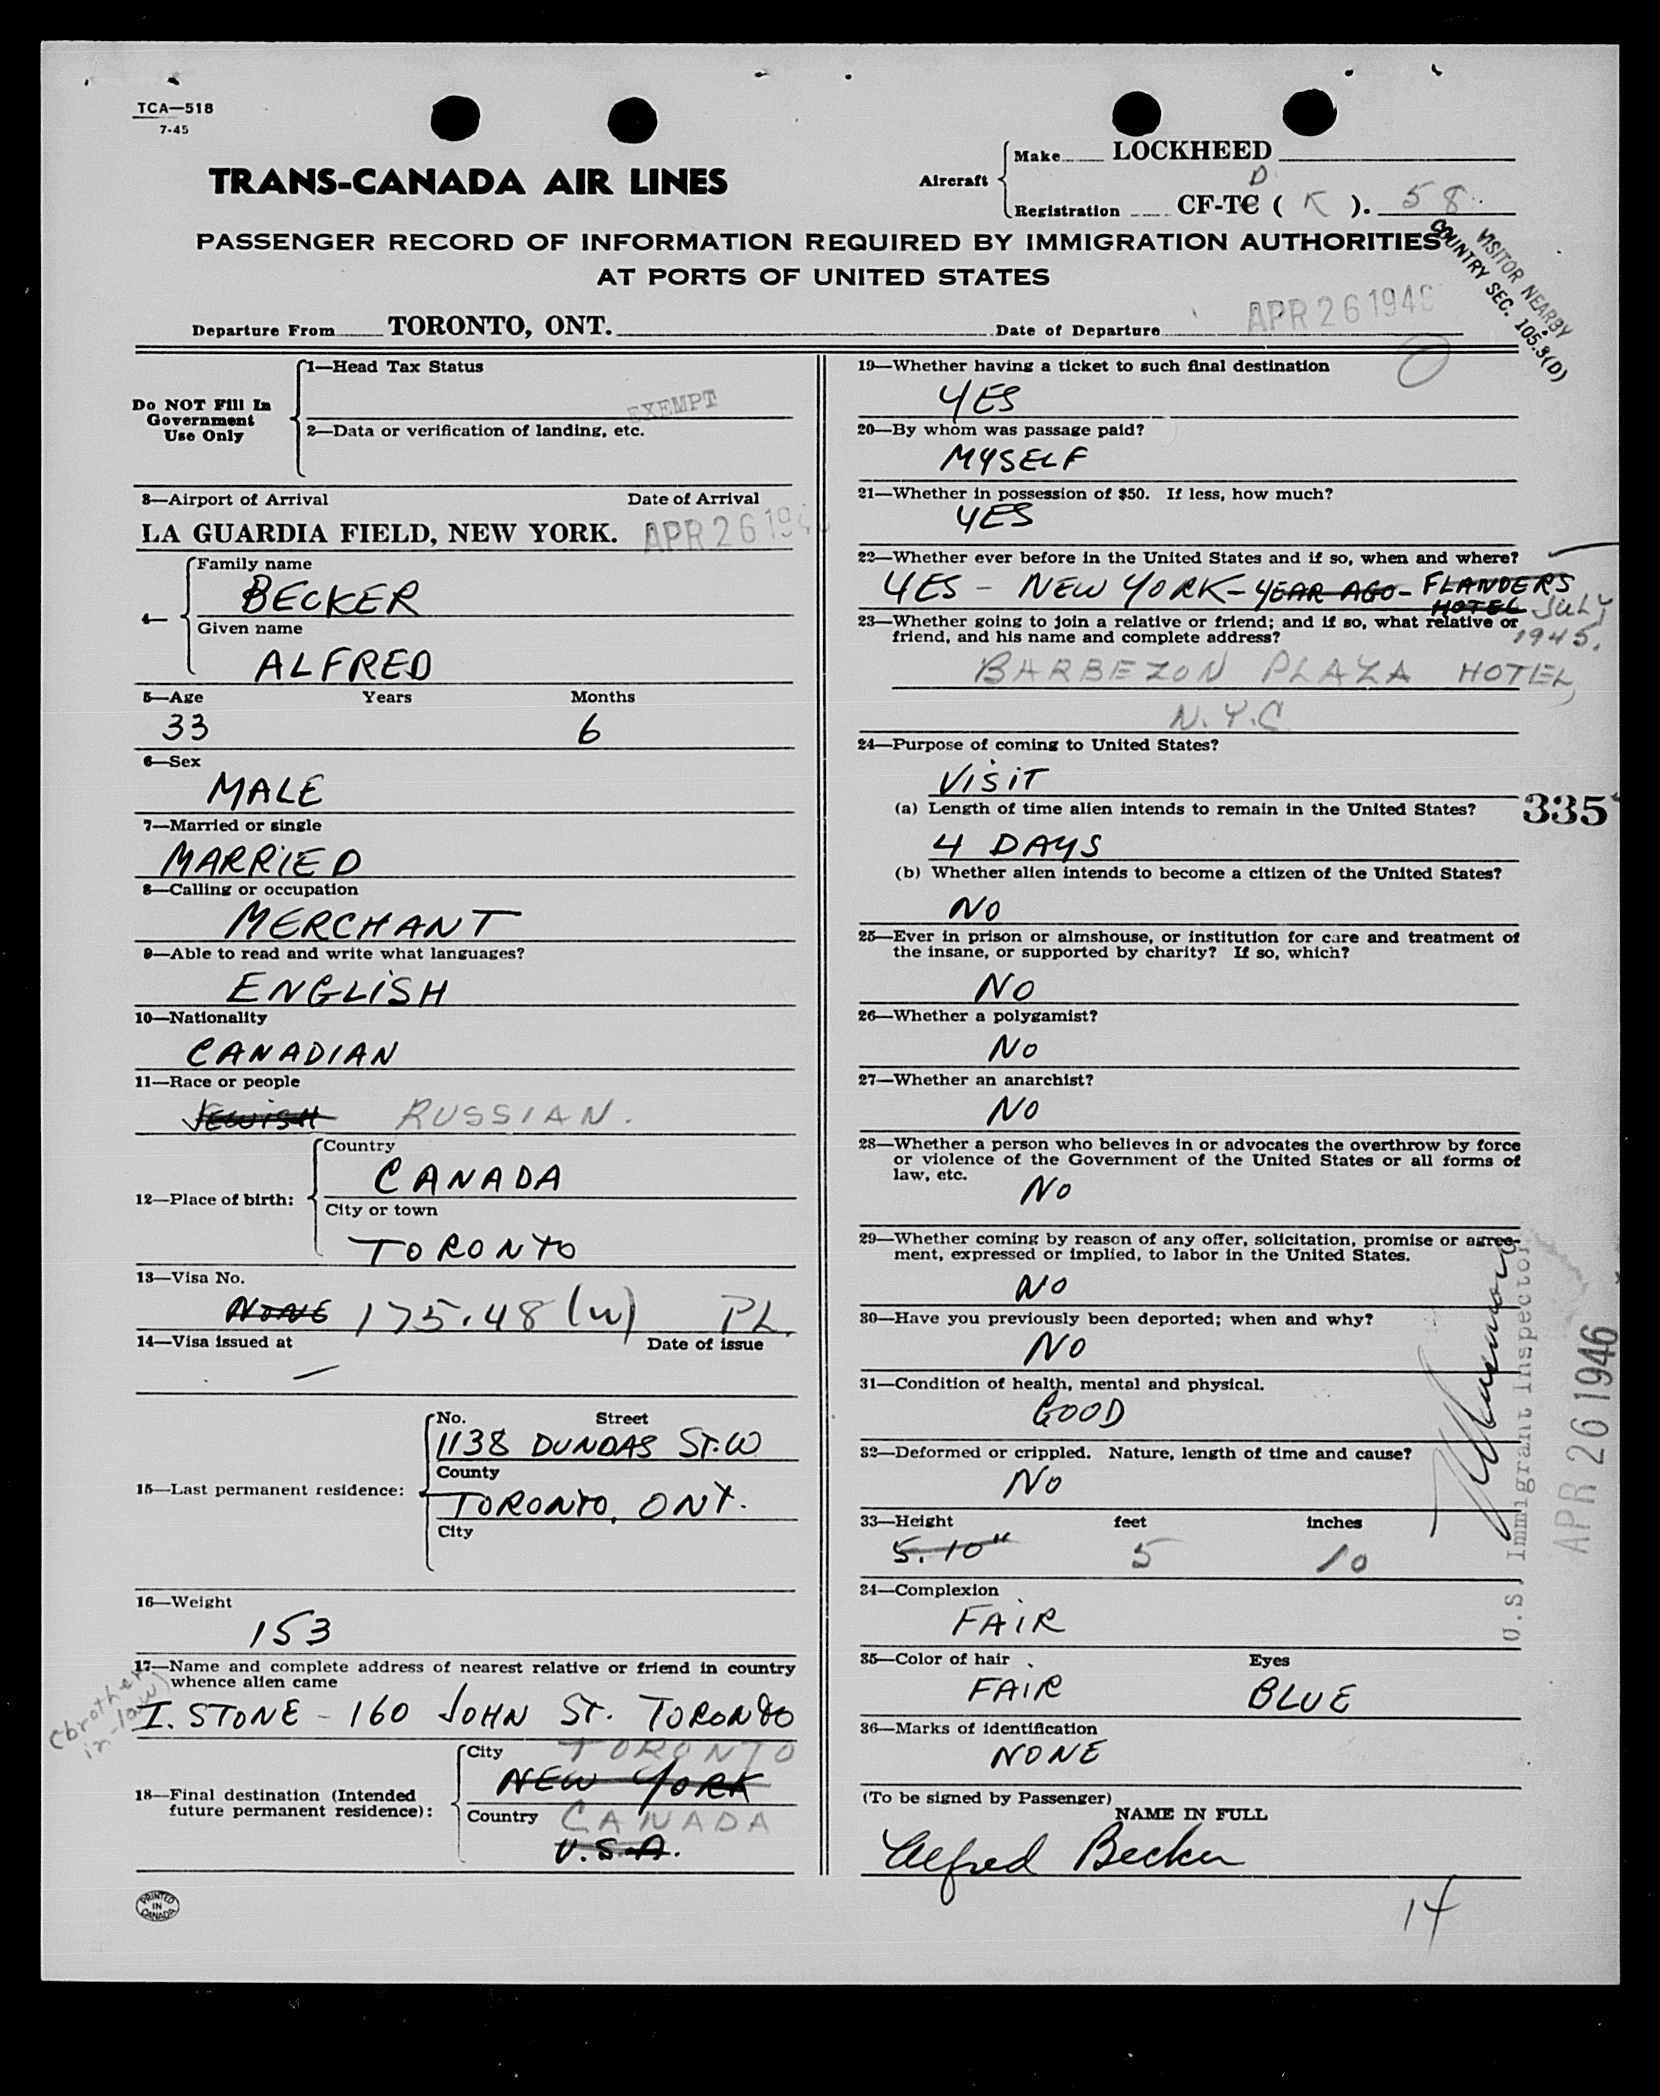 TCA—518
7-45
TRANS-CANADA AIR LINES
Aircraft
Make LOCKHEED
D
Registration CF-TC ( K ). 58
PASSENGER RECORD OF INFORMATION REQUIRED BY IMMIGRATION AUTHORITIES
AT PORTS OF UNITED STATES
VISITOR NEARBY
COUNTRY SEC. 105.3(D)
Departure From TORONTO, ONT. Date of Departure APR 26 1946
Do NOT Fill In
Government
Use Only
1—Head Tax Status
EXEMPT
2—Data or verification of landing, etc.
3—Airport of Arrival Date of Arrival
LA GUARDIA FIELD, NEW YORK. APR 26 194
4—
Family name
BECKER
Given name
ALFRED
5—Age Years Months
33 6
6—Sex
MALE
7—Married or single
MARRIED
8—Calling or occupation
MERCHANT
9—Able to read and write what languages?
ENGLISH
10—Nationality
CANADIAN
11—Race or people
JEWISH RUSSIAN.
12—Place of birth:
Country
CANADA
City or town
TORONTO
13—Visa No.
NONE 175.48 (W) PL.
14—Visa issued at Date of issue
—
15—Last permanent residence:
No. Street
1138 DUNDAS ST. W
County
TORONTO, ONT.
City
16—Weight
153
17—Name and complete address of nearest relative or friend in country
whence alien came
(brother
in-law)
I. STONE - 160 JOHN ST. TORONTO
18—Final destination (Intended
future permanent residence):
City TORONTO
NEW YORK
Country CANADA
U.S.A.
PRINTED
IN
CANADA
19—Whether having a ticket to such final destination
YES
20—By whom was passage paid?
MYSELF
21—Whether in possession of $50. If less, how much?
YES
22—Whether ever before in the United States and if so, when and where?
YES - NEW YORK - YEAR AGO - FLANDERS
HOTEL JULY
1945.
23—Whether going to join a relative or friend; and if so, what relative or
friend, and his name and complete address?
BARBEZON PLAZA HOTEL,
N.Y.C
24—Purpose of coming to United States?
VISIT
(a) Length of time alien intends to remain in the United States?
335
4 DAYS
(b) Whether alien intends to become a citizen of the United States?
NO
25—Ever in prison or almshouse, or institution for care and treatment of
the insane, or supported by charity? If so, which?
NO
26—Whether a polygamist?
NO
27—Whether an anarchist?
NO
28—Whether a person who believes in or advocates the overthrow by force
or violence of the Government of the United States or all forms of
law, etc.
NO
29—Whether coming by reason of any offer, solicitation, promise or agree-
ment, expressed or implied, to labor in the United States.
NO
30—Have you previously been deported; when and why?
NO
31—Condition of health, mental and physical.
GOOD
32—Deformed or crippled. Nature, length of time and cause?
NO
33—Height feet inches
5.10" 5 10
34—Complexion
FAIR
35—Color of hair Eyes
FAIR BLUE
36—Marks of identification
NONE
U.S. Immigrant Inspector
APR 26 1946
(To be signed by Passenger)
NAME IN FULL
Alfred Becker
14